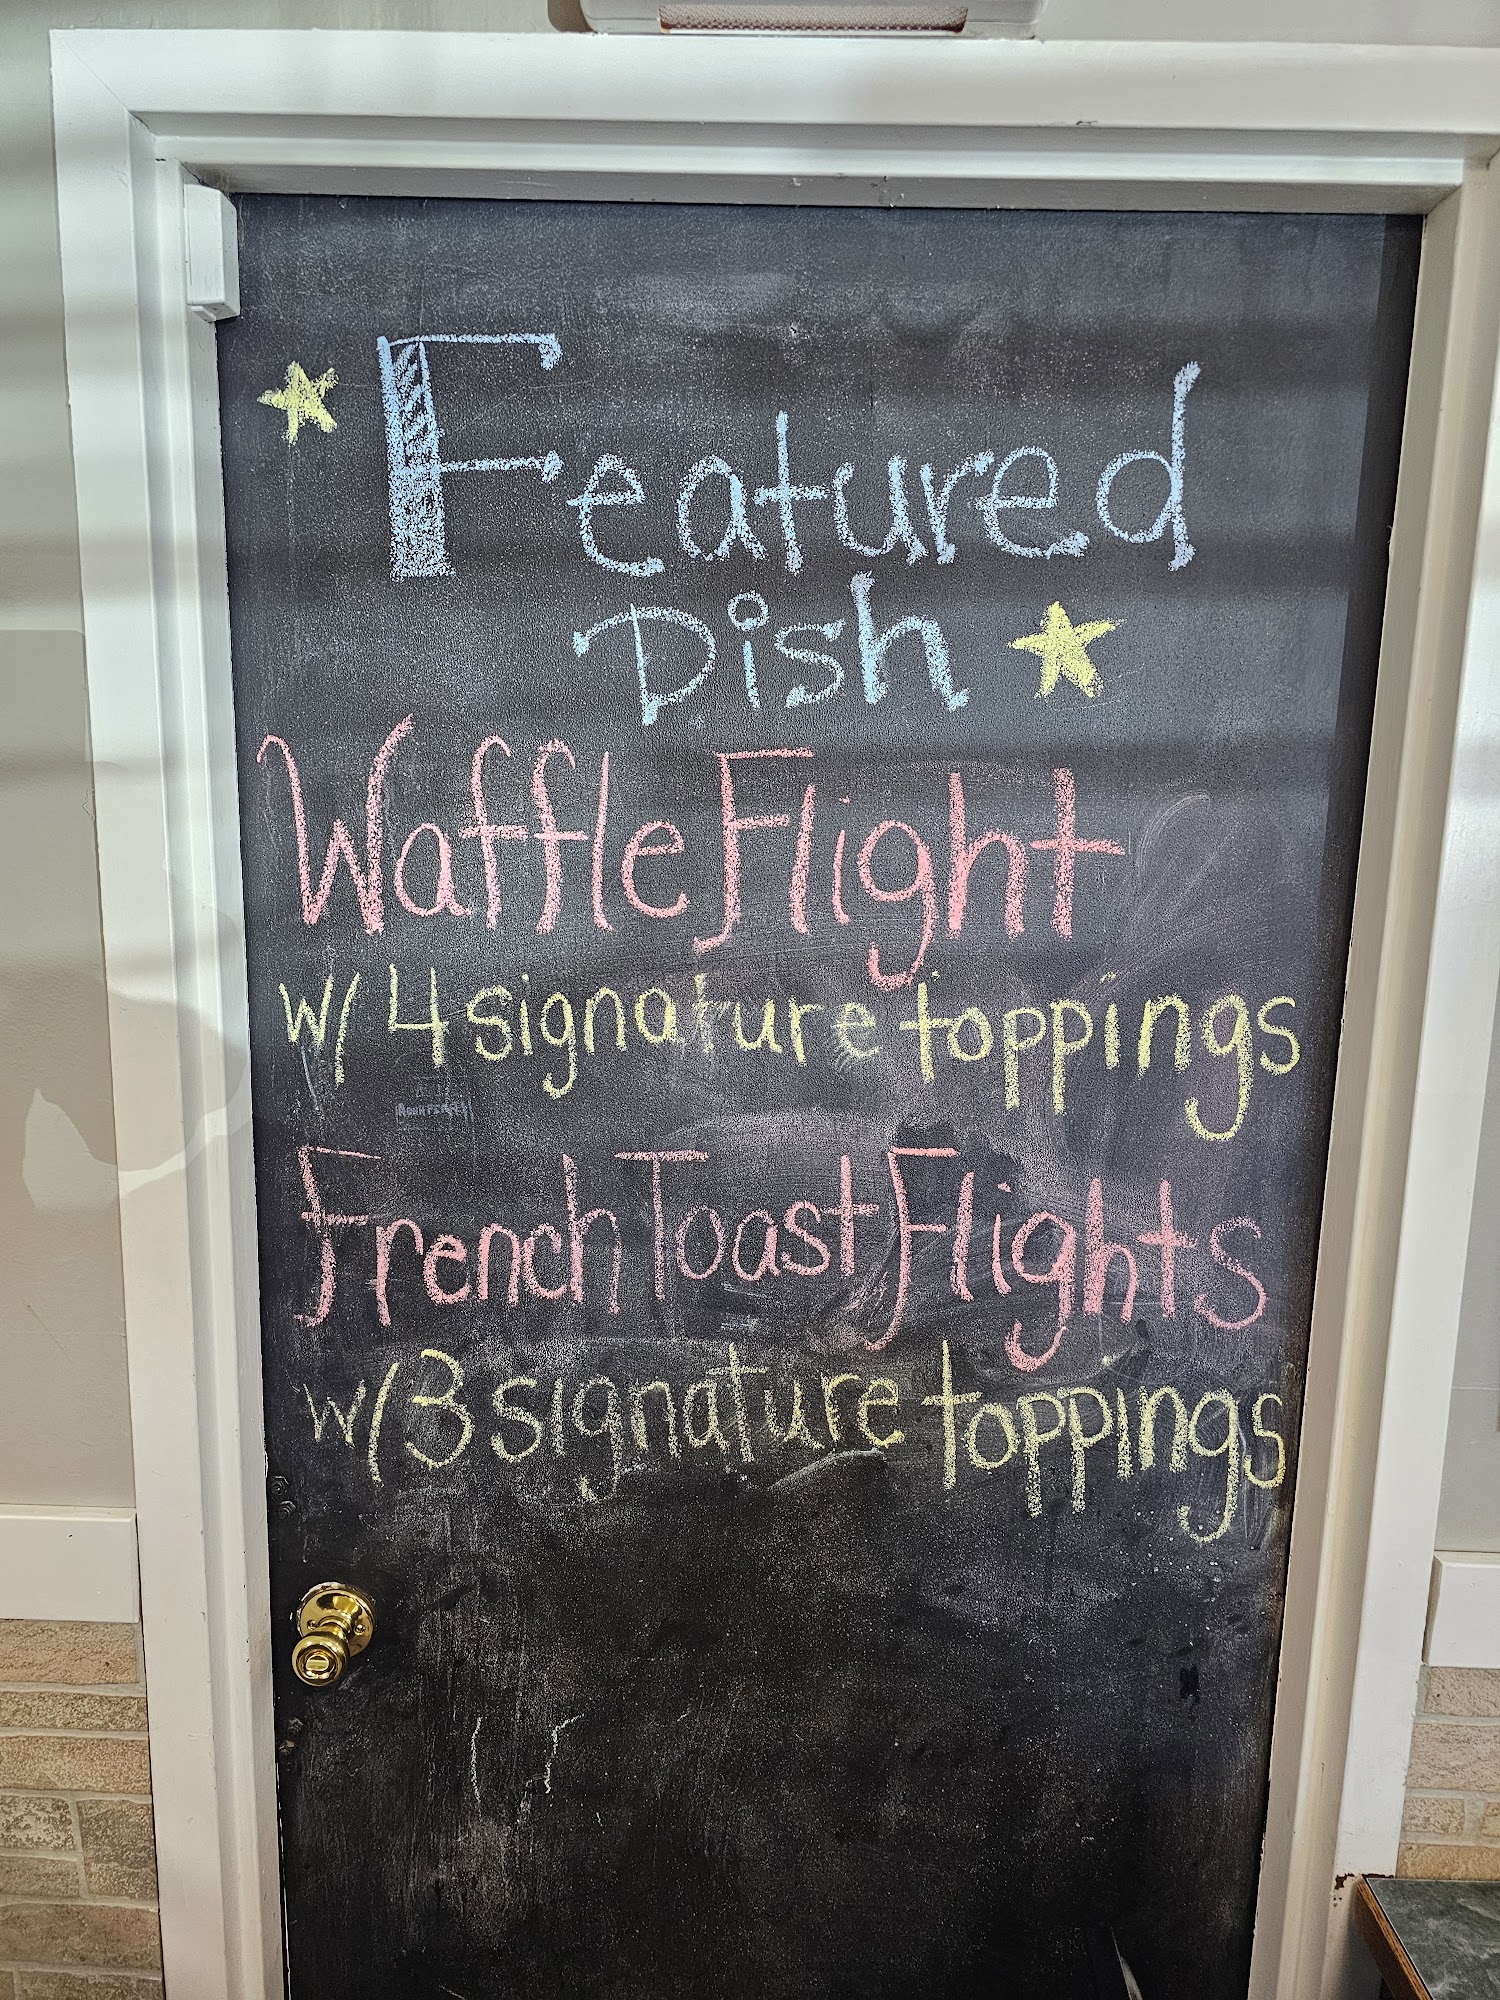 Featured
Dish
Waffle Flight
w/ 4 signature toppings
French Toast Flights
w/ 3 signature toppings